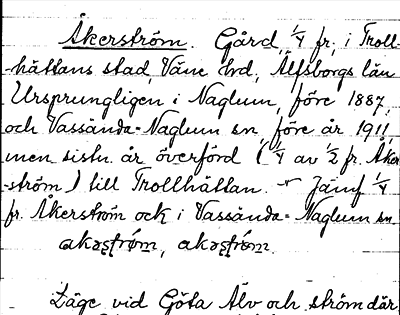 Åkerström. Gård, 1/4 fr., i Troll-
hättans stad, Väne hd, Älfsborgs län
Ursprungligen i Naglum, före 1887,
och Vassända-Naglum sn, före år 1911,
men sistn. år överförd (1/4 av 1/2 fr. Åker-
ström) till Trollhättan. – Jämf 1/4
fr. Åkerström ock i Vassända-Naglum sn.
Läge vid Göta Älv och ström där